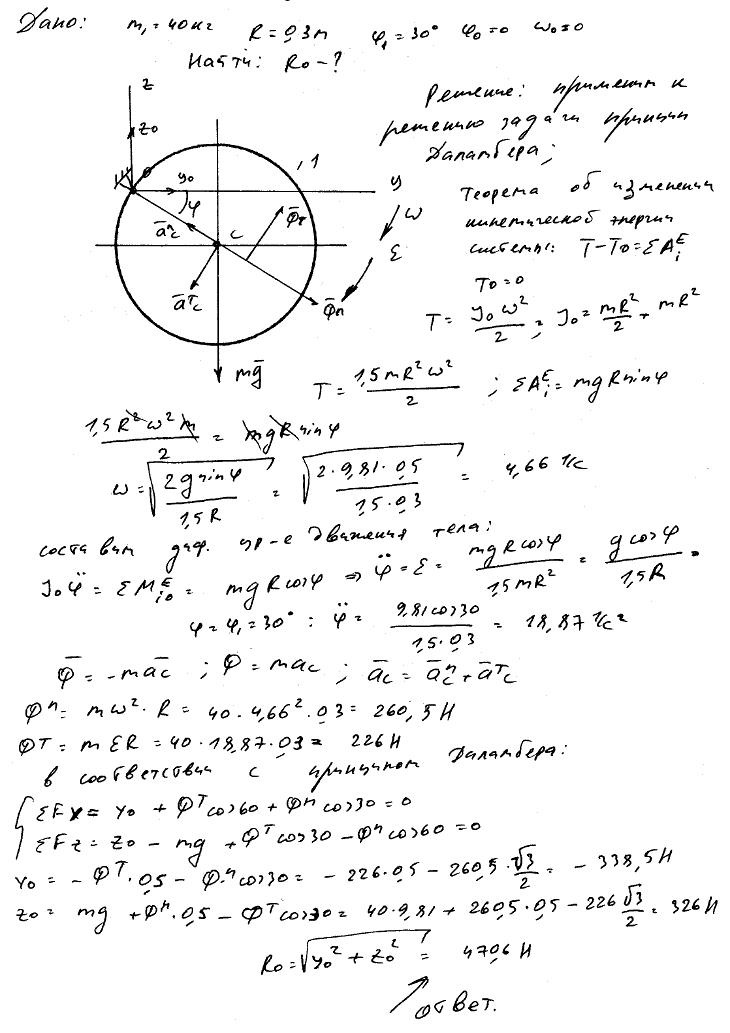 Дано: m₁=40кг R=0,3м φ₁=30° φ₀=0 ω₀=0
Найти: R₀-?
Решение: применим к
решению задачи принцип
Даламбера;
z
z₀
y₀
φ
, 1
y
ω
ε
ā ⁿc
C
Φ̄τ
ā ᵀc
Φ̄n
mḡ
теорема об изменении
кинетической энергии
системы: T-T₀=ΣAᵢᴱ
T₀=0
T = J₀ω²/2 ; J₀ = mR²/2 + mR²
T = 1,5mR²ω²/2 ; ΣAᵢᴱ = mgRsinφ
1,5R²ω²m/2 = mgRsinφ
ω = √(2gsinφ/1,5R) = √(2·9,81·0,5/1,5·0,3) = 4,66 1/с
составим диф. ур-е движения тела:
J₀φ̈ = ΣMᵢ₀ᴱ = mgRcosφ ⇒ φ̈ = ε = mgRcosφ/1,5mR² = gcosφ/1,5R =
φ=φ₁=30° : φ̈ = 9,81cos30/1,5·0,3 = 18,87 1/с²
Φ̄ = -māc ; Φ = mac ; āc = āⁿc + āᵀc
Φⁿ = mω²·R = 40·4,66²·0,3 = 260,5Н
Φᵀ = mεR = 40·18,87·0,3 = 226Н
в соответствии с принципом Даламбера:
ΣFy = y₀ + Φᵀcos60 + Φⁿcos30 = 0
ΣFz = z₀ - mg + Φᵀcos30 - Φⁿcos60 = 0
y₀ = -Φᵀ·0,5 - Φⁿcos30 = -226·0,5 - 260,5·√3/2 = -338,5Н
z₀ = mg + Φⁿ·0,5 - Φᵀcos30 = 40·9,81 + 260,5·0,5 - 226 √3/2 = 326Н
R₀ = √(y₀² + z₀²) = 470,6 Н
ответ.